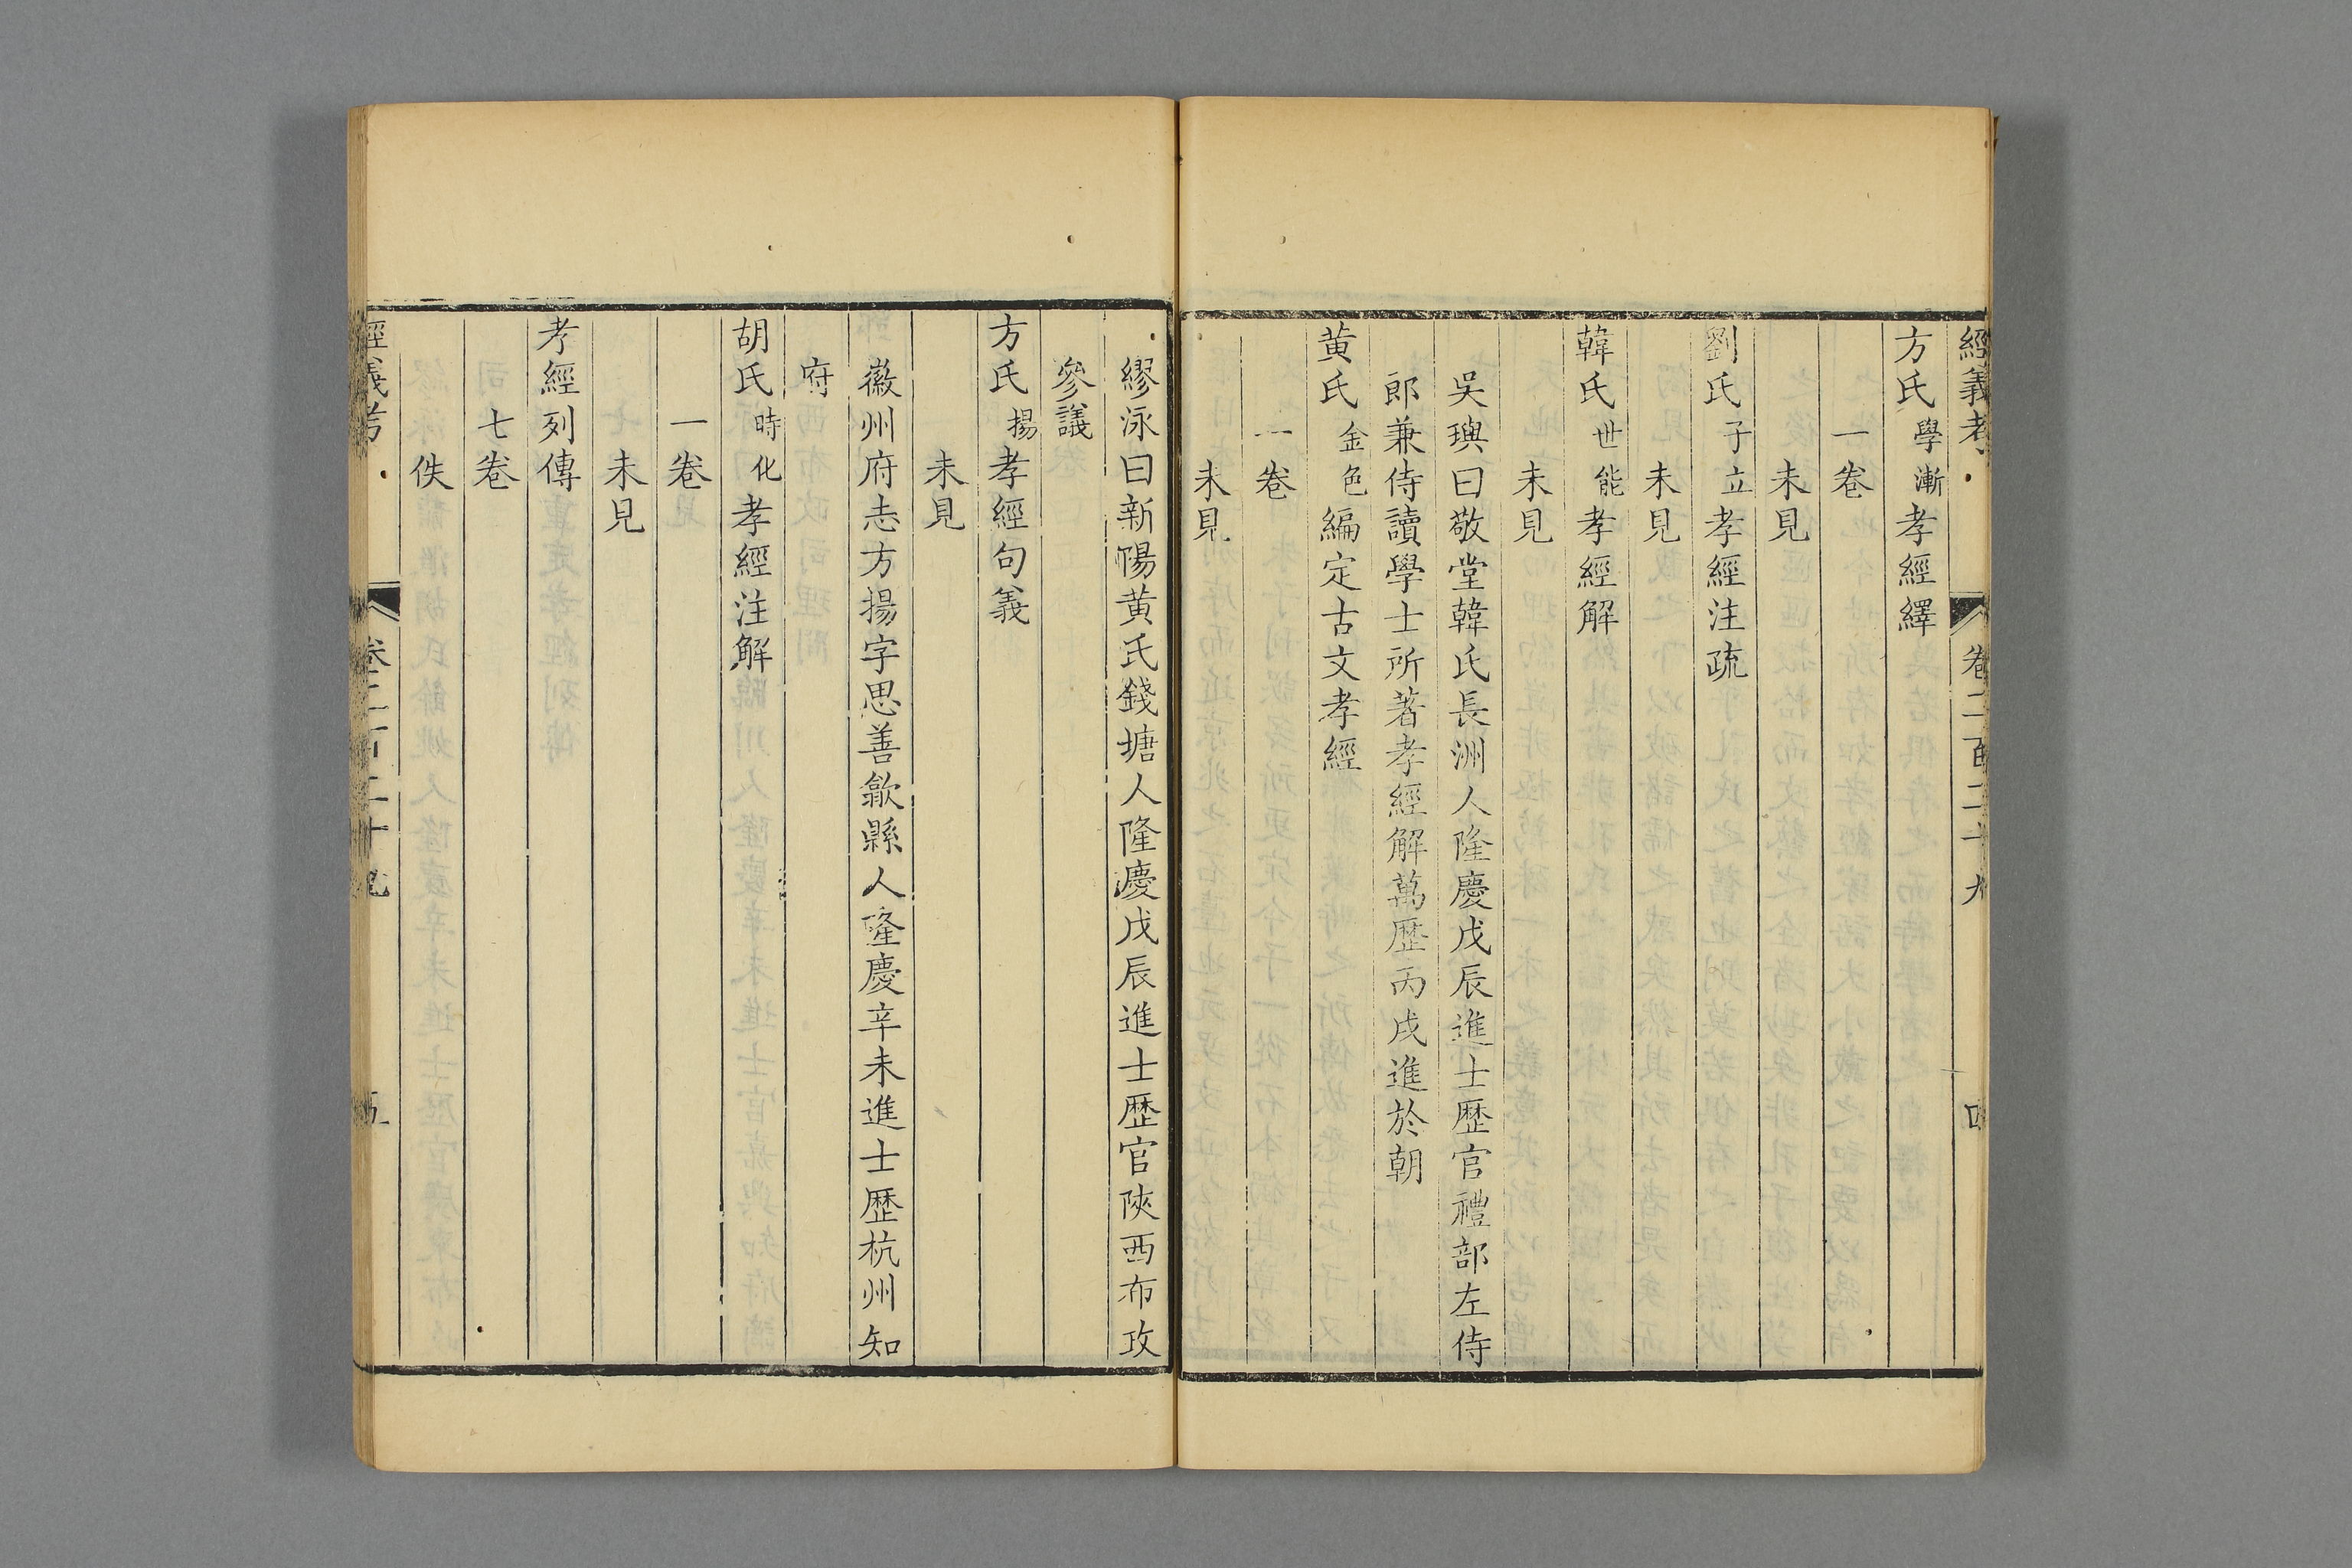 經義考 卷二百二十九 四
方氏學漸孝經繹
一卷
未見
劉氏子立孝經注疏
未見
韓氏世能孝經解
未見
吳璵曰敬堂韓氏長洲人隆慶戊辰進士歷官禮部左侍
郎兼侍讀學士所著孝經解萬歷丙戌進於朝
黃氏金色編定古文孝經
一卷
未見
繆泳曰新陽黃氏錢塘人隆慶戊辰進士歷官陝西布政
參議
方氏揚孝經句義
未見
徽州府志方揚字思善歙縣人隆慶辛未進士歷杭州知
府
胡氏時化孝經注解
一卷
未見
孝經列傳
七卷
佚
經義考 卷二百二十九 五